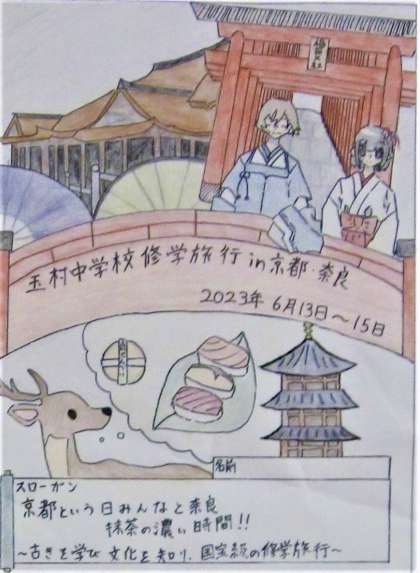 玉村中学校修学旅行in京都・奈良
2023年 6月13日～15日
名前
スローガン
京都という日みんなと奈良
抹茶の濃い時間!!
～古きを学び 文化を知り、国宝級の修学旅行～